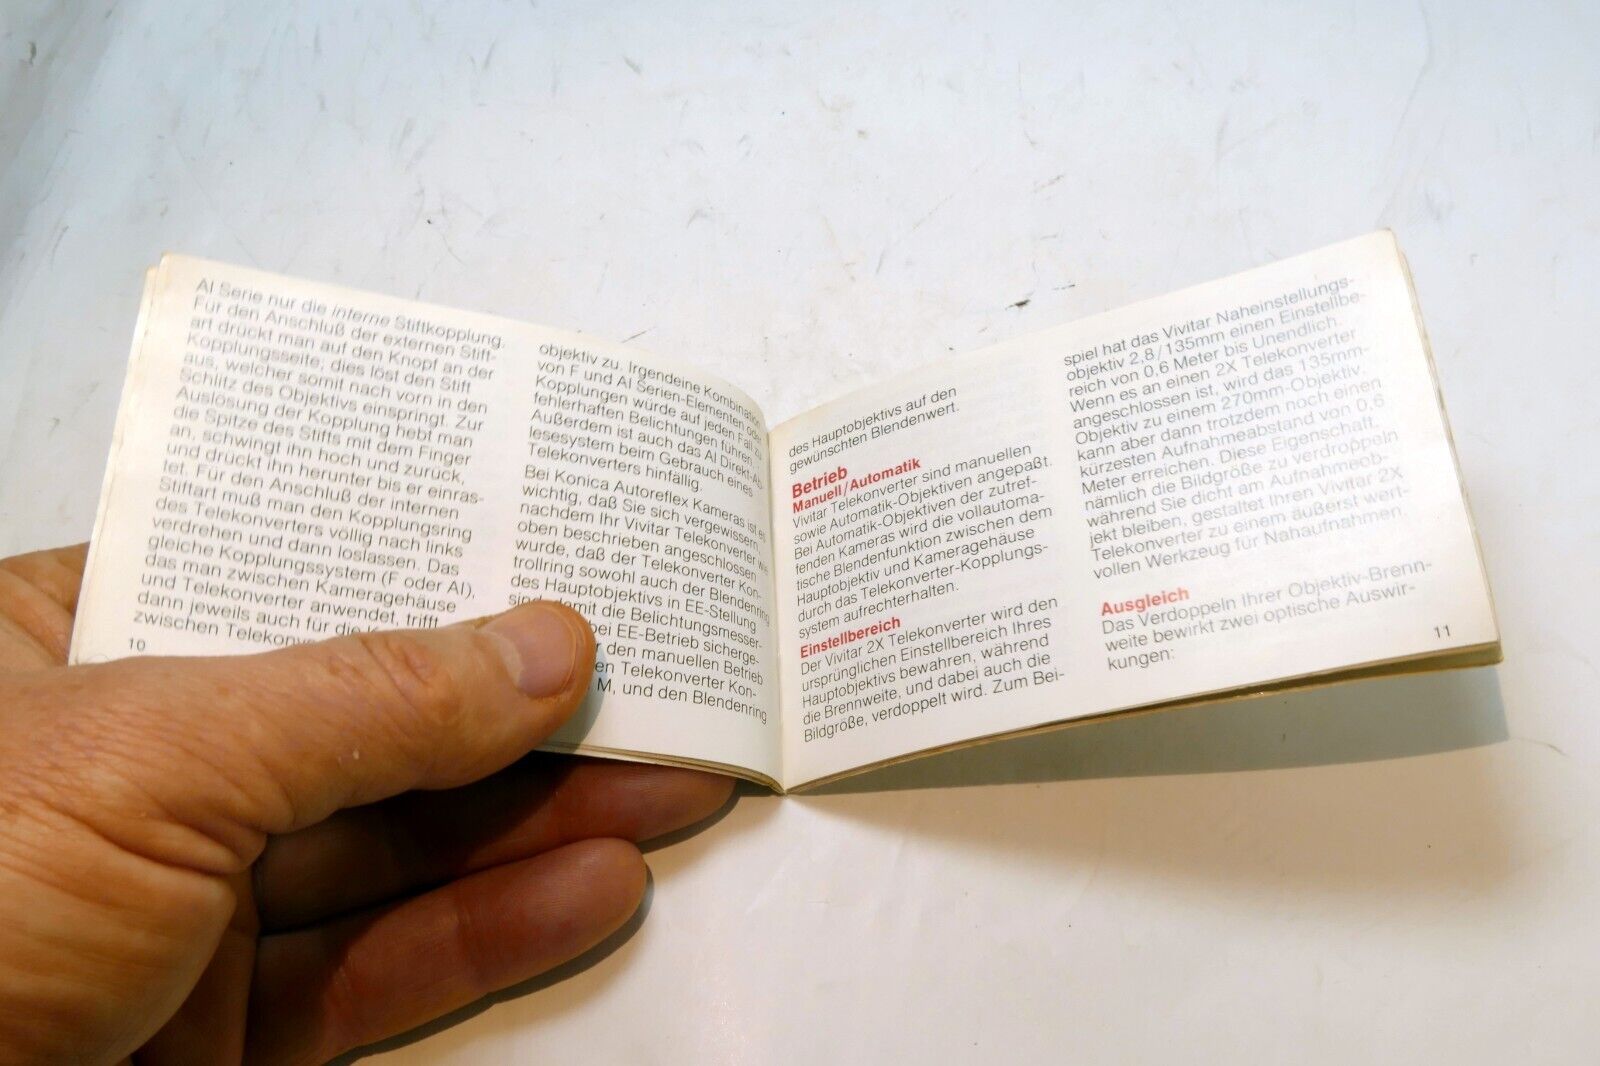 AI Serie nur die interne Stiftkopplung.
Für den Anschluß der externen Stift-
art drückt man auf den Knopf an der
Kopplungsseite; dies löst den Stift
aus, welcher somit nach vorn in den
Schlitz des Objektivs einspringt. Zur
Auslösung der Kopplung hebt man
die Spitze des Stifts mit dem Finger
an, schwingt ihn hoch und zurück,
und drückt ihn herunter bis er einras-
tet. Für den Anschluß der internen
Stiftart muß man den Kopplungsring
des Telekonverters völlig nach links
verdrehen und dann loslassen. Das
gleiche Kopplungssystem (F oder AI),
das man zwischen Kameragehäuse
und Telekonverter anwendet, trifft
dann jeweils auch für die
zwischen
10
objektiv zu. Irgendeine Kombination
von F und AI Serien-Elementen oder
Kopplungen würde auf jeden Fall zu
fehlerhaften Belichtungen führen.
Außerdem ist auch das AI Direkt-Ab-
lesesystem beim Gebrauch eines
Telekonverters hinfällig.
Bei Konica Autoreflex Kameras ist es
wichtig, daß Sie sich vergewissern,
nachdem Ihr Vivitar Telekonverter wie
oben beschrieben angeschlossen
wurde, daß der Telekonverter Kon-
trollring sowohl auch der Blendenring
des Hauptobjektivs in EE-Stellung
damit die Belichtungsmesser-
bei EE-Betrieb sicherge-
den manuellen Betrieb
Telekonverter Kon-
M, und den Blendenring
des Hauptobjektivs auf den
gewünschten Blendenwert.
Betrieb
Manuell/Automatik
Vivitar Telekonverter sind manuellen
sowie Automatik-Objektiven angepaßt.
Bei Automatik-Objektiven der zutref-
fenden Kameras wird die vollautoma-
tische Blendenfunktion zwischen dem
Hauptobjektiv und Kameragehäuse
durch das Telekonverter-Kopplungs-
system aufrechterhalten.
Einstellbereich
Der Vivitar 2X Telekonverter wird den
ursprünglichen Einstellbereich Ihres
Hauptobjektivs bewahren, während
die Brennweite, und dabei auch die
Bildgröße, verdoppelt wird. Zum Bei-
spiel hat das Vivitar Naheinstellungs-
objektiv 2,8/135mm einen Einstellbe-
reich von 0,6 Meter bis Unendlich.
Wenn es an einen 2X Telekonverter
angeschlossen ist, wird das 135mm-
Objektiv zu einem 270mm-Objektiv,
kann aber dann trotzdem noch einen
kürzesten Aufnahmeabstand von 0,6
Meter erreichen. Diese Eigenschaft,
nämlich die Bildgröße zu verdoppeln
während Sie dicht am Aufnahmeob-
jekt bleiben, gestaltet Ihren Vivitar 2X
Telekonverter zu einem äußerst wert-
vollen Werkzeug für Nahaufnahmen.
Ausgleich
Das Verdoppeln Ihrer Objektiv-Brenn-
weite bewirkt zwei optische Auswir-
kungen:
11